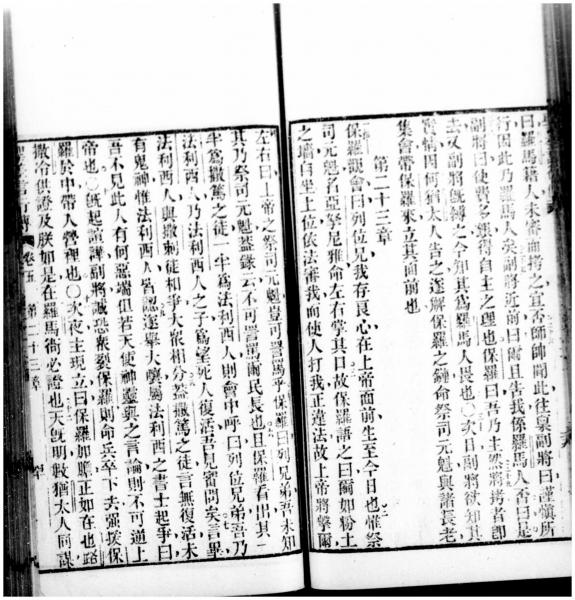 曰羅馬籍人未審而拷之宜否師師聞此往稟副將曰謹慎所
行因此乃羅馬人矣副將近前曰爾且告我係羅馬人否曰是
副將曰使費多銀得自主之理也保羅曰吾乃生然將拷者即
去又副將既縛之今知其為羅馬人畏也〇次日副將欲知其
實情因何猶太人告之遂解保羅之鏈命祭司元魁與諸長老
集會帶保羅來立其面前也
第二十三章
保羅觀會曰列位兄我存良心在上帝面前生至今日也惟祭
司元魁名亞孥尼雅命左右掌其口故保羅語之曰爾如粉土
之墻白坐上位依法審我而使人打我正違法故上帝將擊爾
左右曰上帝之祭司元魁豈可詈罵乎保羅曰列兄弟吾未知
其乃祭司元魁蓋錄云不可詈罵爾民長也且保羅看出其一
半為撒篤之徒一半為法利西人則會中呼曰列位兄弟吾乃
法利西人乃法利西人之子為望死人復活吾見審問矣言畢
法利西人與撒刺徒相爭大眾相分蓋撒篤之徒言無復活未
有鬼神惟法利西人皆認遂舉大聲屬法利西之書士起爭曰
吾不見此人有何惡端但若天使神靈與之言論則不可逼上
帝也〇既起諠譁副將誠恐眾裂保羅則命兵卒下去强拔保
羅於中帶入營裡也〇次夜主現立曰保羅加膽正如在也路
撒冷供證及朕如是在羅馬衙必證也天既明數猶太人同謀
卷五 第二十三章